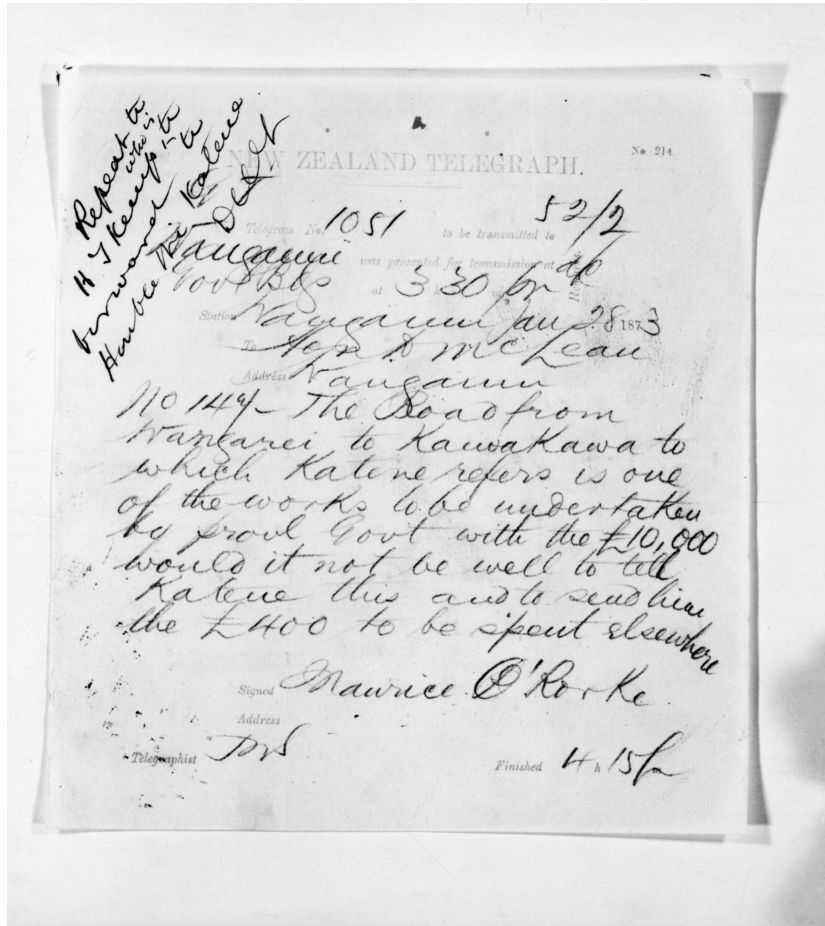 Repeat to
who is
H T Kemp to
forward to
Honble Wi Katene
NEW ZEALAND TELEGRAPH.
No. 214
Telegram No. 1051 to be transmitted to 52/2
Wanganui was presented for transmission at
Govt Bgs at 3 h 30 pm
Station Wanganui Jan 28 1873
To Hon D McLean
Address Wanganui
No 149 - The Road from
Wangarei to Kawakawa to
which Katene refers is one
of the works to be undertaken
by provl Govt with the £10,000
would it not be well to tell
Katene this and to send him
the £400 to be spent elsewhere
Signed Maurice O'Rorke
Address
Telegraphist
Finished 4 h 15 pm